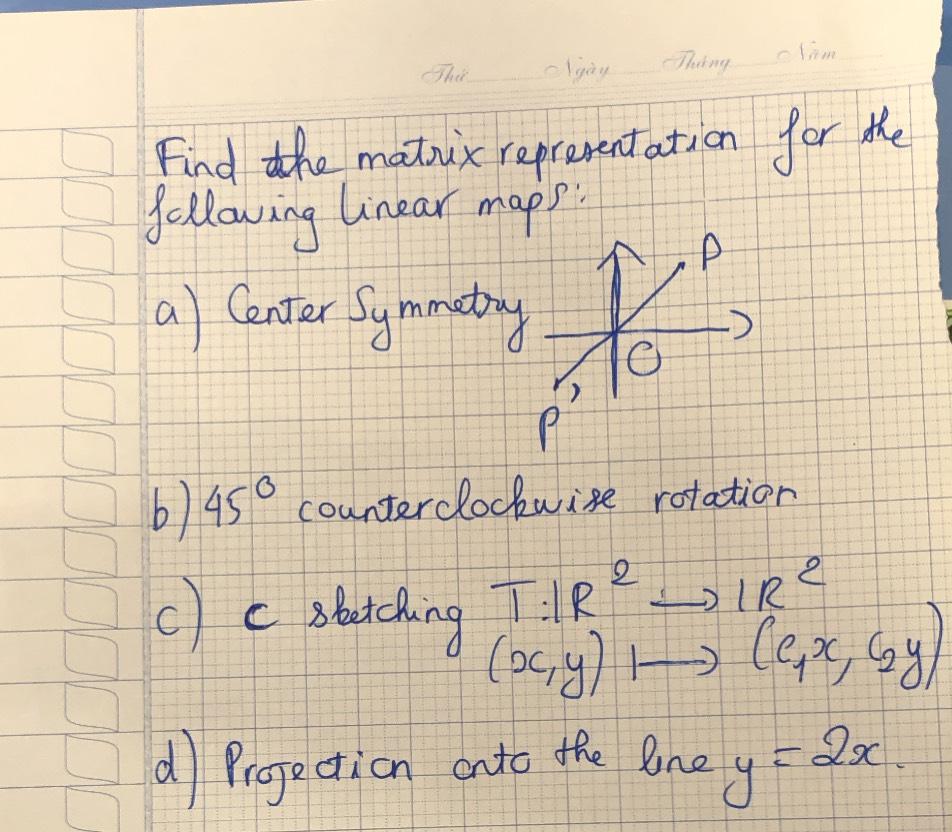 Thứ Ngày Tháng Năm
Find the matrix representation for the
following linear maps:
a) Center Symmetry
P
O
P'
b) 45° counterclockwise rotation
c) c sketching T: ℝ² → ℝ²
(x, y) ↦ (c₁x, c₂y)
d) Projection onto the line y = 2x.